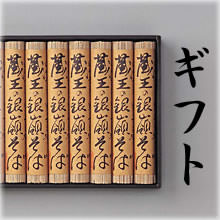 蔵王の銀嶺そば
蔵王の銀嶺そば
蔵王の銀嶺そば
蔵王の銀嶺そば
蔵王の銀嶺そば
蔵王の銀嶺そば
蔵王の銀嶺そば
ギフト